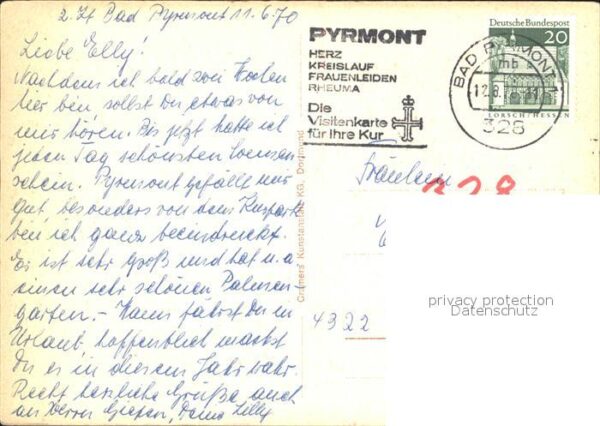 z. Zt Bad Pyrmont 11.6.70
Liebe Elly!
Nachdem ich bald zwei Wochen
hier bin sollst Du etwas von
mir hören. Bis jetzt hatte ich
jeden Tag schönsten Sonnen-
schein. Pyrmont gefällt mir
gut, besonders von dem Kurpark
bin ich ganz beeindruckt.
Er ist sehr groß und hat u. a.
einen sehr schönen Palmen-
garten. - Wann fährst Du in
Urlaub, hoffentlich machst
Du es in diesem Jahr wahr.
Recht herzliche Grüße auch
an Herrn Deine Lilly
Cramers Kunstanstalt KG, Dortmund
PYRMONT
HERZ
KREISLAUF
FRAUENLEIDEN
RHEUMA
Die
Visitenkarte
für Ihre Kur
Deutsche Bundespost
20
LORSCH/HESSEN
BAD PYRMONT
mb
328
Fräulein
328
4322
privacy protection
Datenschutz